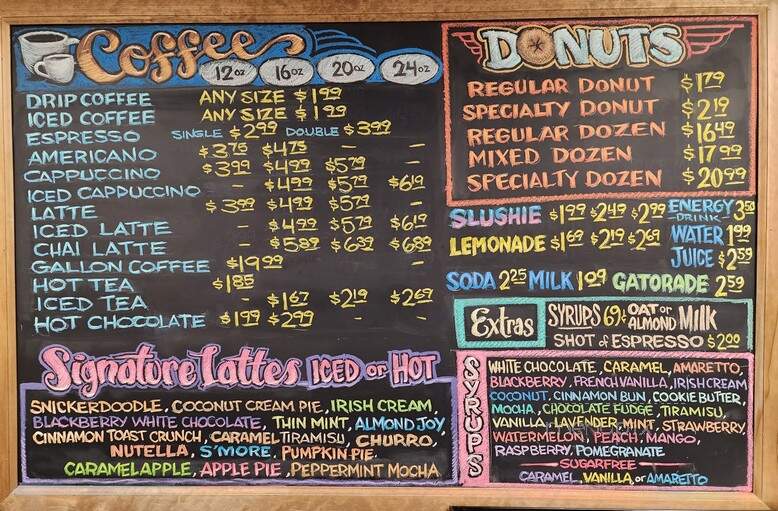 Coffee 12oz 16oz 20oz 24oz
DRIP COFFEE ANY SIZE $1 99
ICED COFFEE ANY SIZE $1 99
ESPRESSO SINGLE $2 99 DOUBLE $3 99
AMERICANO $3 75 $4 75 — —
CAPPUCCINO $3 99 $4 99 $5 79 —
ICED CAPPUCCINO — $4 99 $5 79 $6 19
LATTE $3 99 $4 99 $5 79 —
ICED LATTE — $4 99 $5 79 $6 19
CHAI LATTE — $5 89 $6 39 $6 89
GALLON COFFEE $19 99
HOT TEA $1 85
ICED TEA — $1 67 $2 19 $2 69
HOT CHOCOLATE $1 99 $2 99 — —
Signature Lattes ICED or HOT
SNICKERDOODLE, COCONUT CREAM PIE, IRISH CREAM,
BLACKBERRY WHITE CHOCOLATE, THIN MINT, ALMOND JOY,
CINNAMON TOAST CRUNCH, CARAMEL TIRAMISU, CHURRO,
NUTELLA, S'MORE, PUMPKIN PIE,
CARAMEL APPLE, APPLE PIE, PEPPERMINT MOCHA
DONUTS
REGULAR DONUT $1 79
SPECIALTY DONUT $2 19
REGULAR DOZEN $16 49
MIXED DOZEN $17 99
SPECIALTY DOZEN $20 99
SLUSHIE $1 99 $2 49 $2 99
LEMONADE $1 69 $2 19 $2 69
ENERGY DRINK 3 50
WATER 1 99
JUICE $2 59
SODA 2 25 MILK 1 09 GATORADE 2 59
Extras SYRUPS 69¢ OAT or ALMOND MILK
SHOT of ESPRESSO $2 00
SYRUPS
WHITE CHOCOLATE, CARAMEL, AMARETTO,
BLACKBERRY, FRENCH VANILLA, IRISH CREAM
COCONUT, CINNAMON BUN, COOKIE BUTTER,
MOCHA, CHOCOLATE FUDGE, TIRAMISU,
VANILLA, LAVENDER, MINT, STRAWBERRY,
WATERMELON, PEACH, MANGO,
RASPBERRY, POMEGRANATE
— SUGARFREE —
CARAMEL, VANILLA, or AMARETTO